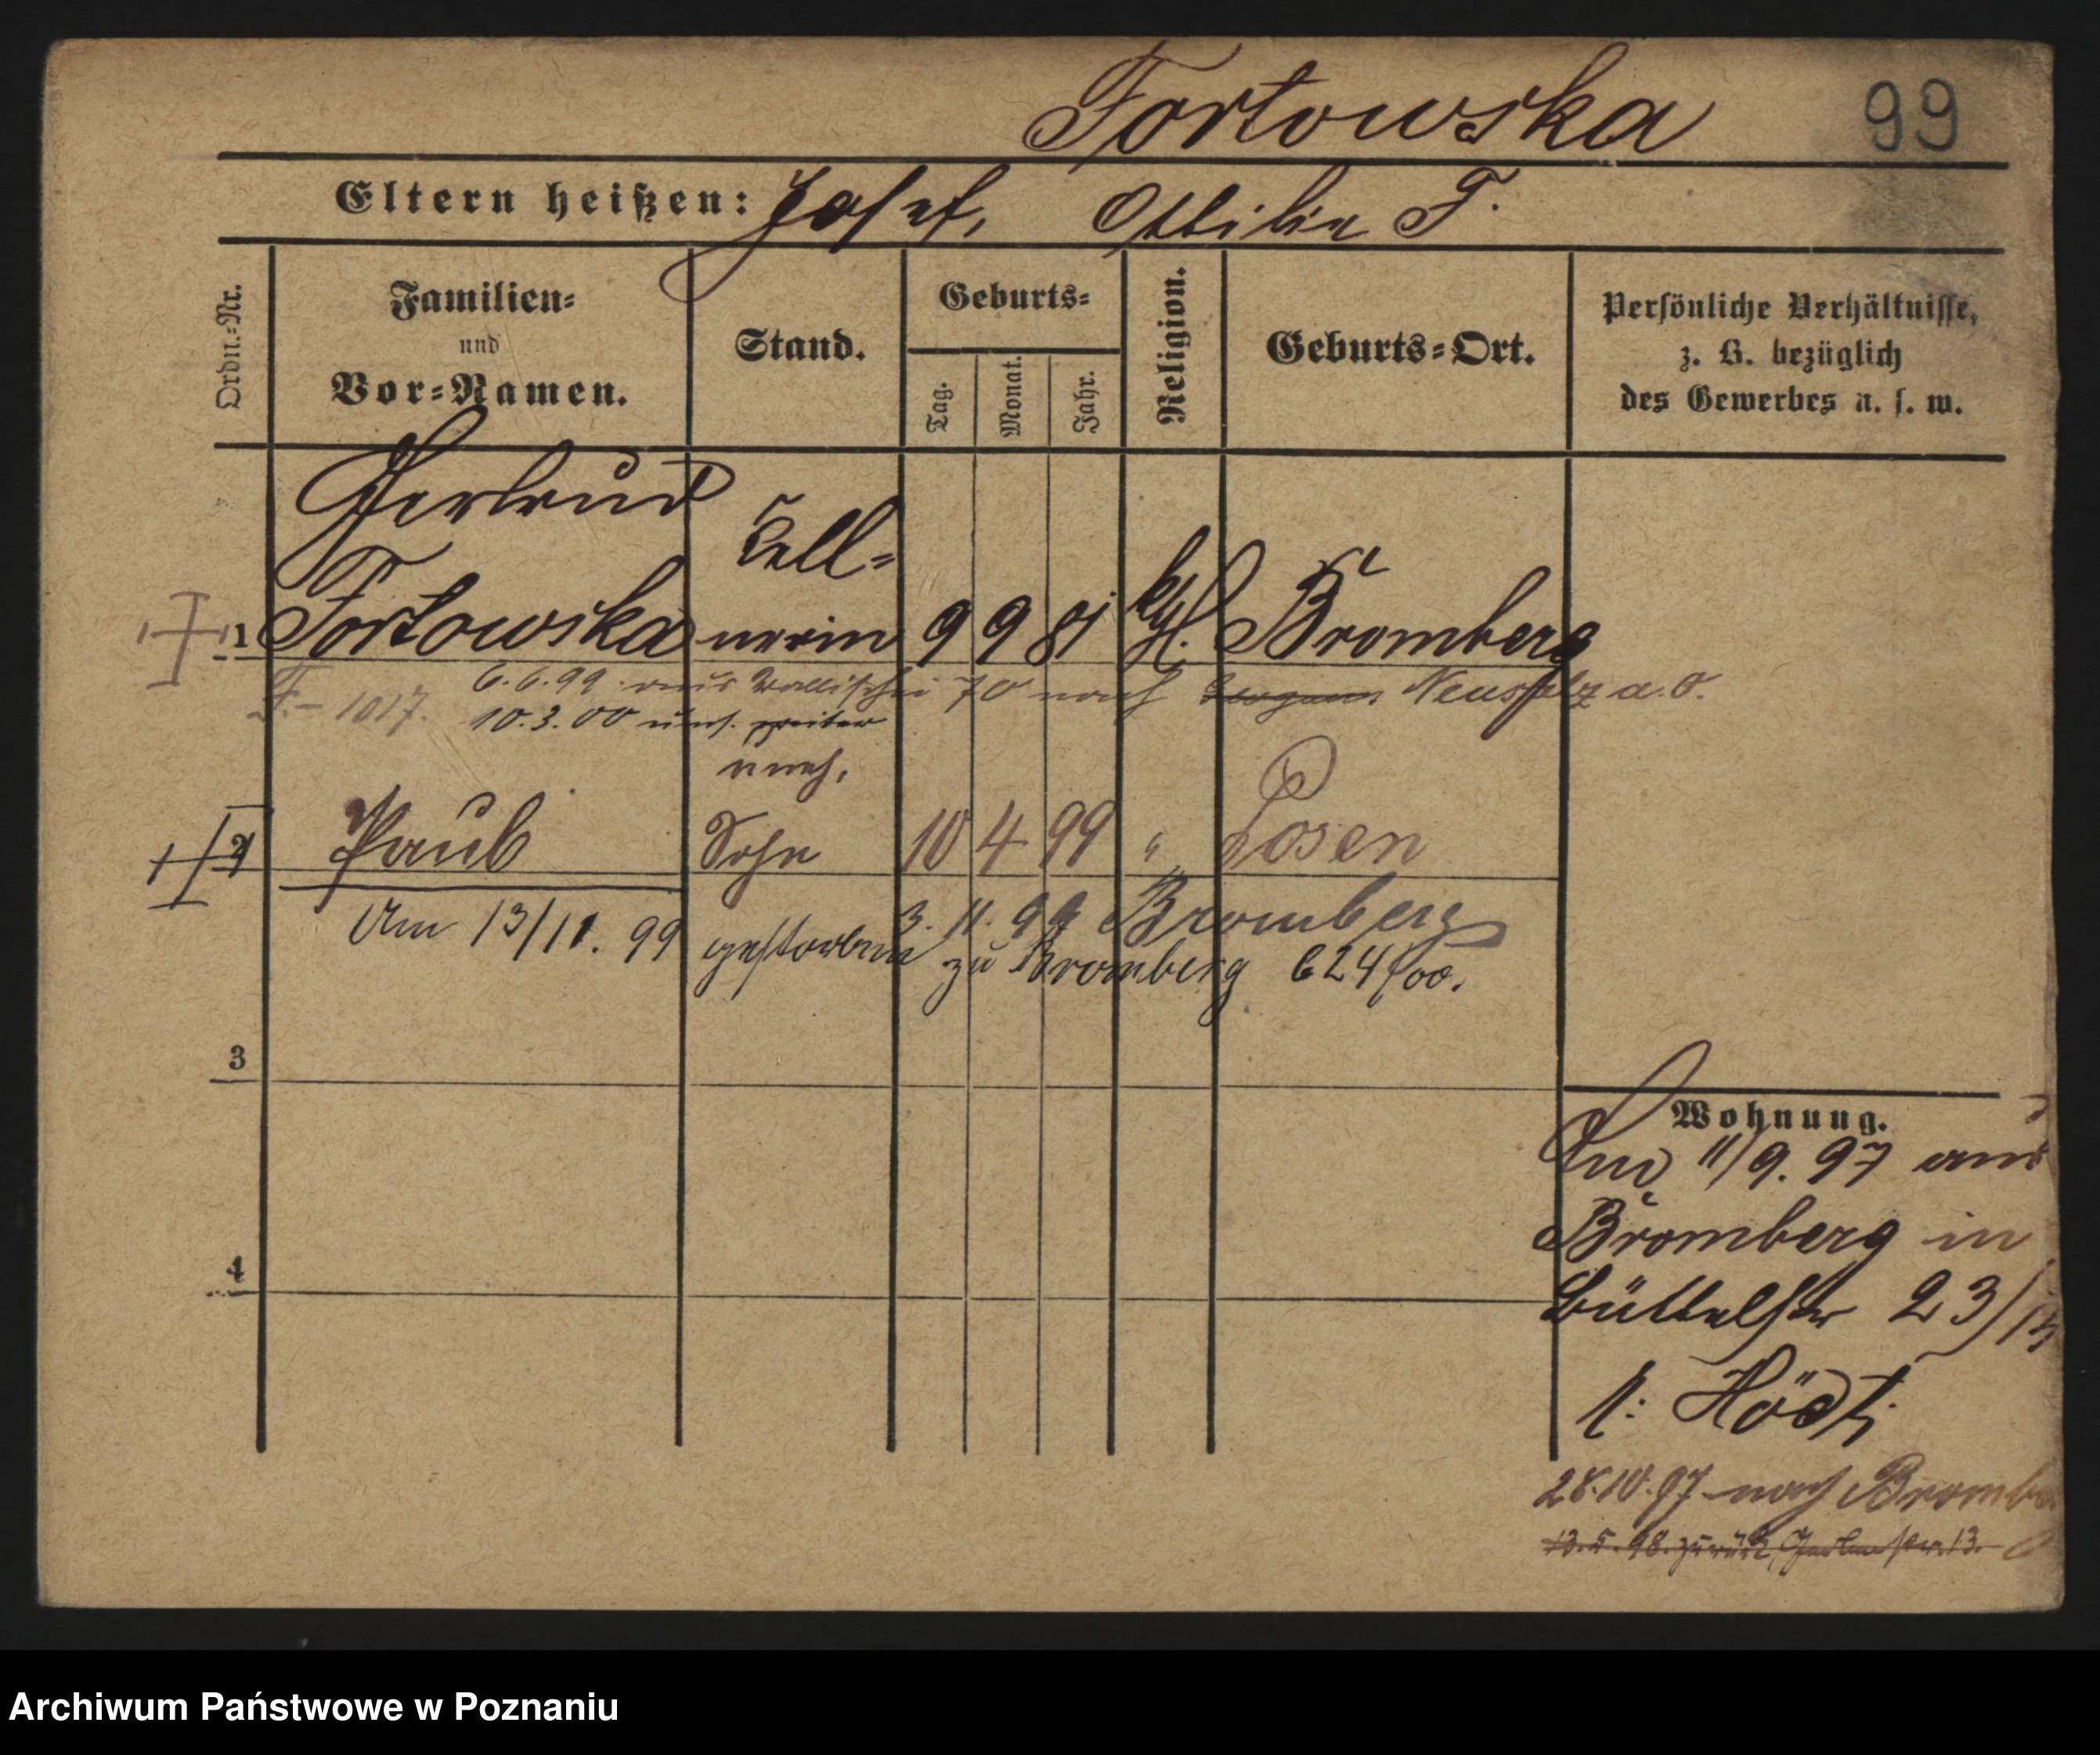 Fortowska 99
Eltern heißen: Josef, Ottilie F.
Ordn.=Nr.
Familien=
und
Vor=Namen.
Stand.
Geburts=
Tag. Monat. Jahr.
Religion.
Geburts=Ort.
Persönliche Verhältnisse,
z. B. bezüglich
des Gewerbes u. s. w.
Gertrud
Kell=
1 Fortowska nerin 9 9 81 kth. Bromberg
6.6.99 aus Wallischei 70 nach Neusalz a. O.
F. - 1017. 10.3.00 weiter
uneh.
2 Paul Sohn 10 4 99 " Posen
3. 11. 99 Bromberg
Am 13/11. 99 gestorben zu Bromberg 624/00.
3
4
Wohnung.
11/9. 97 aus
Bromberg in
Büttelstr 23/
28.10.97 nach Bromb
13.5.98. zurück, 13.
Archiwum Państwowe w Poznaniu